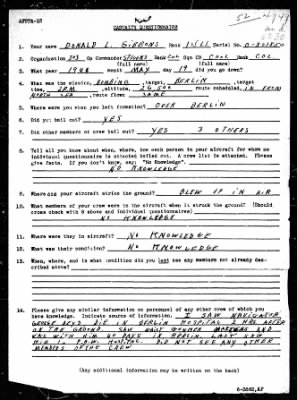 AFPPA-12
52-4749
and
CASUALTY QUESTIONNAIRE
1. Your name DONALD L. GIBBONS Rank 1st Lt. Serial No.
2. Organization 303 Gp Commander STEVENS Rank COL Sqn CO COOK Rank COL
(full name) (full name)
3. What year 1944 month MAY day 19 did you go down?
4. What was the mission, BOMBING, target, BERLIN, target
time, 2 P.M., altitude, 26,500 route scheduled, IN FROM
NORTH SEA, route flown SAME
5. Where were you when you left formation? OVER BERLIN
6. Did you bail out? YES
7. Did other members of crew bail out? YES 3 OTHERS
8. Tell all you know about when, where, how each person in your aircraft for whom no
individual questionnaire is attached bailed out. A crew list is attached. Please
give facts. If you don't know, say: "No Knowledge".
NO KNOWLEDGE
9. Where did your aircraft strike the ground? BLEW UP IN AIR
10. What members of your crew were in the aircraft when it struck the ground? (Should
cross check with 8 above and individual questionnaires)
NO KNOWLEDGE
11. Where were they in aircraft? NO KNOWLEDGE
12. What was their condition? NO KNOWLEDGE
13. When, where, and in what condition did you last see any members not already des-
cribed above?
14. Please give any similar information on personnel of any other crew of which you
have knowledge. Indicate source of information. I SAW NAVIGATOR
GEORGE DIE IN BERLIN HOSPITAL 3 HRS AFTER
ON THE GROUND. SAW WAIST GUNNER AND
WAS WITH HIM 40 DAYS IN BERLIN. LAST SAW
HIM IN P.O.W. HOSPITAL. DID NOT SEE ANY OTHER
MEMBERS OF THE CREW
(Any additional information may be written on the back)
6-3862,AF